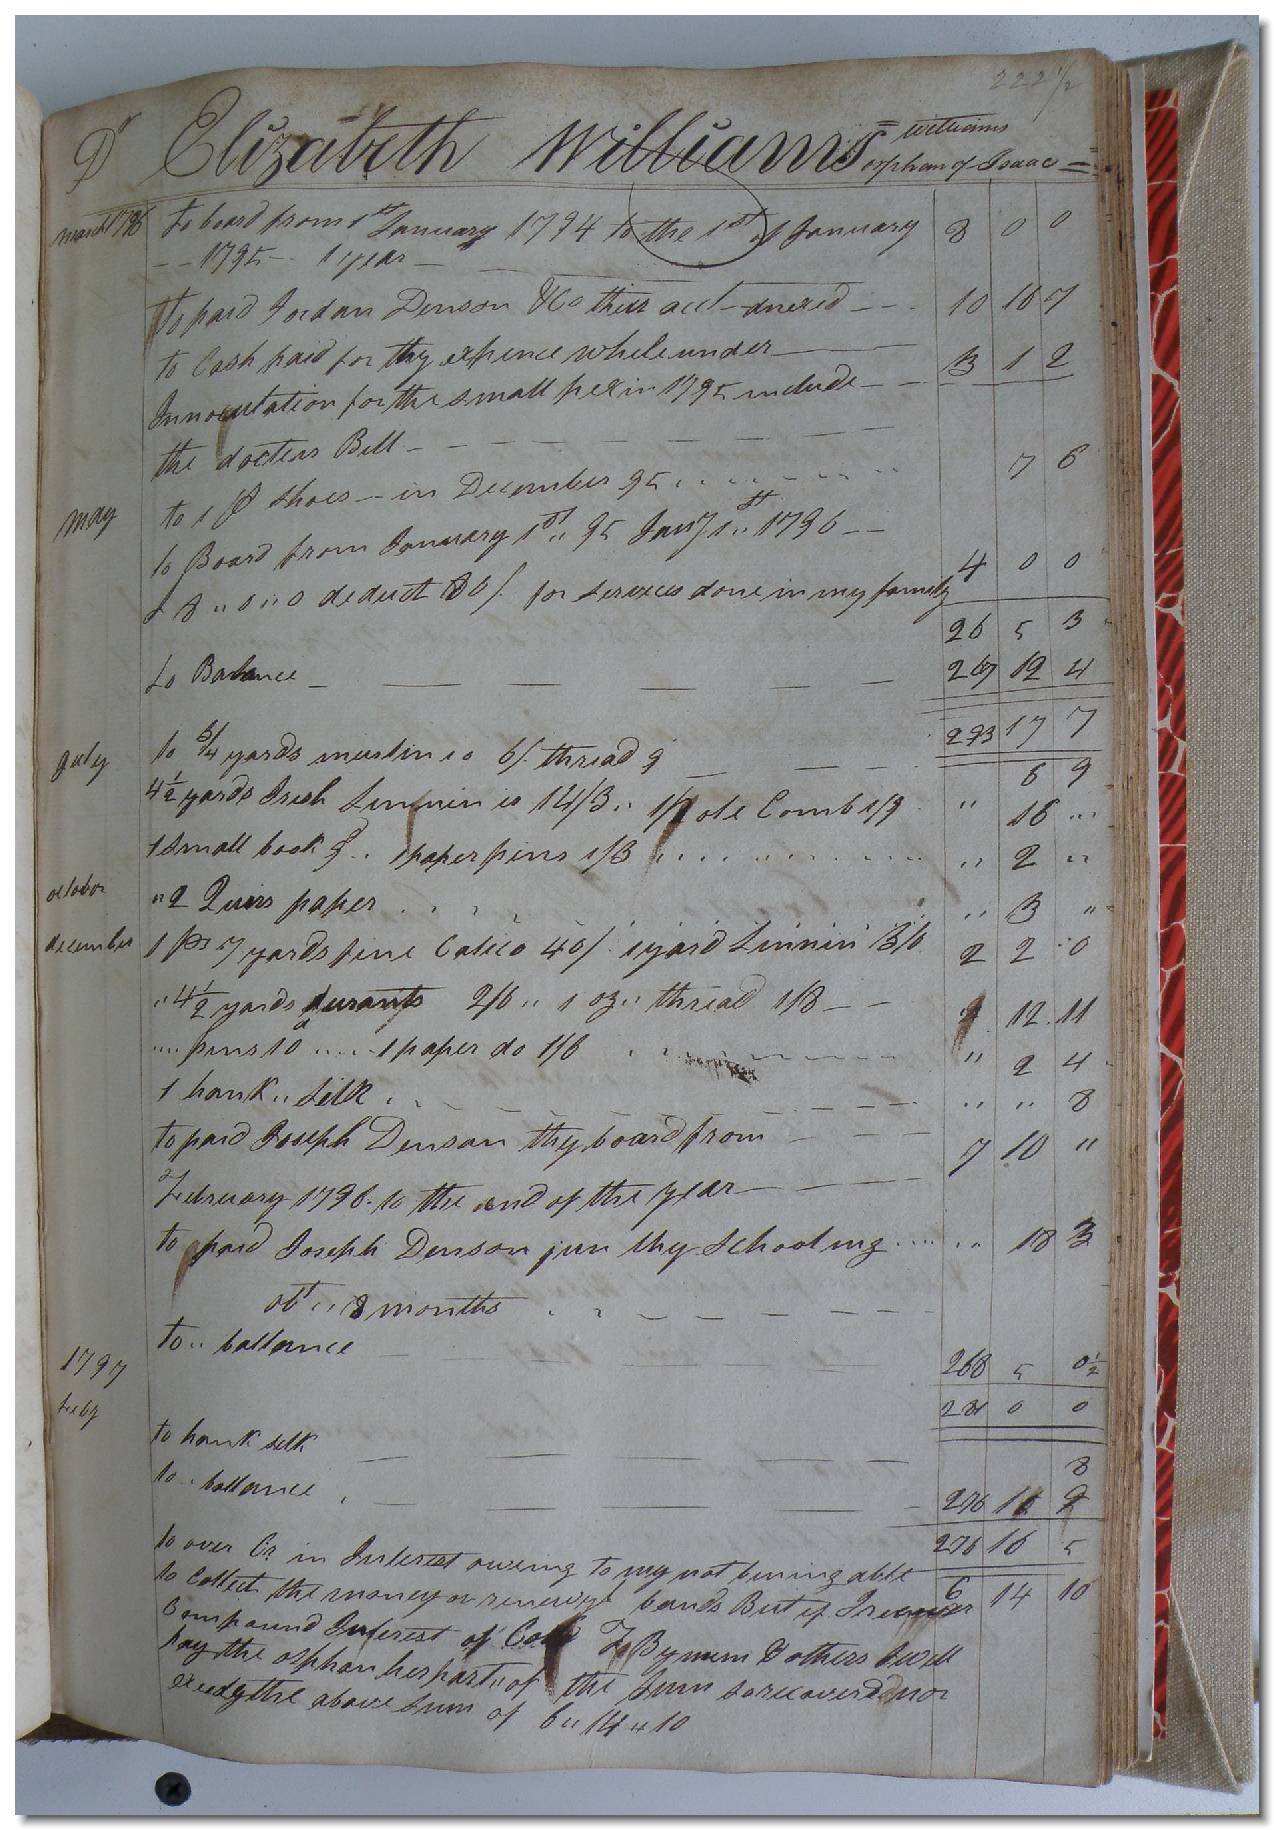 222 1/2
Dr Elizabeth Williams = Williams
orphan of Isaac =
march 1796 to board from 1st January 1794 to the 1st of January 8 0 0
-- 1795 - 1 year -
To paid Jordan Denson &Co their acct anexed - - - 10 16 7
to Cash paid for thy expence while under 3 1 2
Innoculation for the small pox in 1795 include - -
the docters Bill -
7 6
may to 1 P shoes - in December 95
to Board from January 1st 95 Jany 1st 1796 -
£ 8 " 0 " 0 deduct 80/ for servces done in my family 4 0 0
26 5 3
to Balance - 267 12 4
293 17 7
July to 3/4 yards muslin is 6/ thread 9 6 9
4 1/2 yards Irish Linnin is 14/3 " 1 Comb 1/9 " 16 "
1 Small book 9 " 1 paper pins 1/3 " 2 "
octobor "2 Quirs paper " 3 "
december 1 ps 7 yards fine Calico 40/ 1 yard Linnin 3/6 2 2 0
" 4 1/2 yards durants 2/6 " 1 oz " thread 1/8 - - 12 11
" pins 10d " 1 paper do 1/6 " 2 4
1 hank " silk " " 8
to paid Joseph Denson thy board from 7 10 "
February 1796 to the end of the year
to paid Joseph Denson jun thy Schooling " 18 3
" 8 months
to " ballance 268 5 0 1/2
1797 281 0 0
Feby
to hank silk 8
to " ballance 276 16 2
276 16 5
to over Cr in Interest owing to my not being able
6 14 10
to Collect the money or renewg bonds But if I recover
Compound Interest of Bynum & others I will
pay the orphan her part " of the Sum so recovered nor
exceedg the above Sum of 6 " 14 " 10